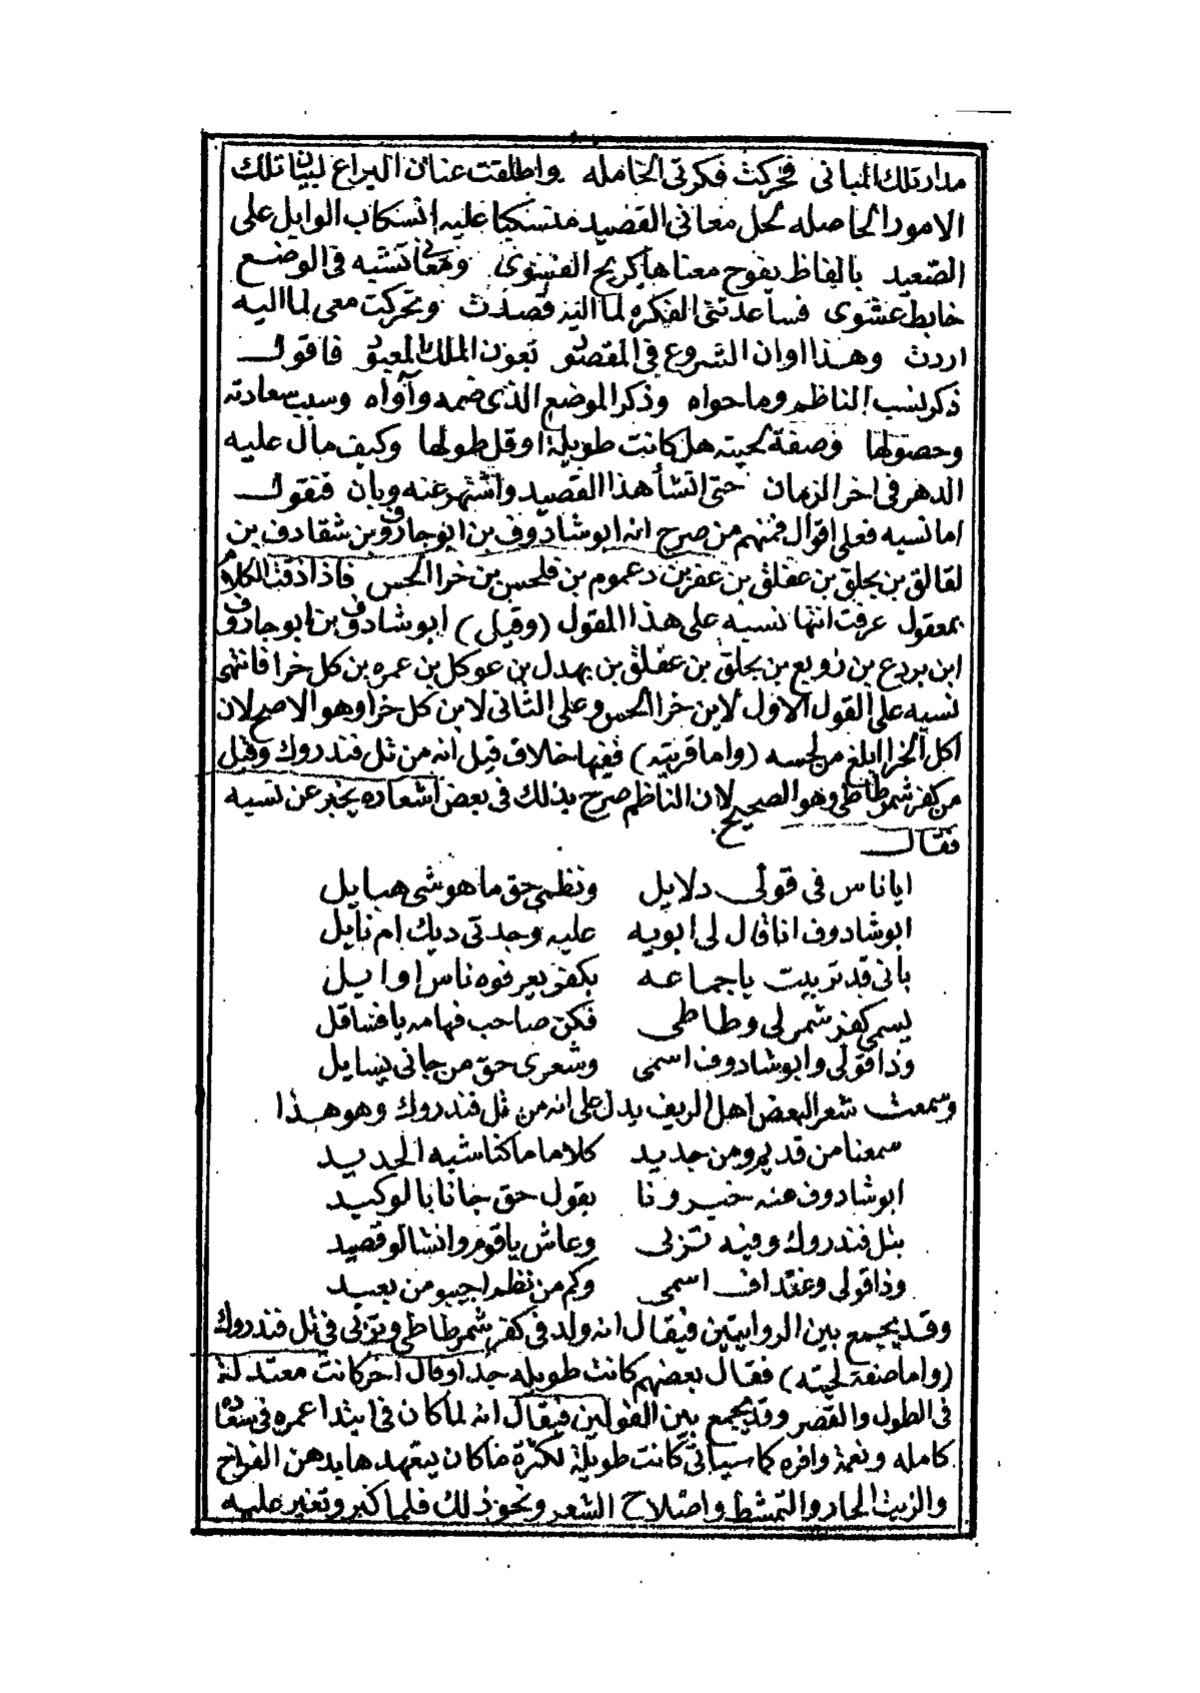 مدار تلك المباني فحركت فكرتي الخامله واطلقت عنان اليراع لبيان تلك
الامور الحاصله لحل معاني القصيد منسكبا عليه انسكاب الوابل على
الصعيد بالفاظ يفوح معناها كريح الفسوى ومعاني تشبه في الوضع
خابط عشوى فساعدتني الفكره لما اليه قصدت وتحركت معي لما اليه
اردت وهذا اوان الشروع في المقصود بعون الملك المعبود فاقول
ذكر نسب الناظم وما حواه وذكر الموضع الذي ضمه وآواه وسبب سعادته
وحصولها وصفة لحيته هل كانت طويلة او قل طولها وكيف مال عليه
الدهر في اخر الزمان حتى انشأ هذا القصيد واشتهر عنه وبان فنقول
اما نسبه فعلى اقوال فمنهم من صرح انه ابو شادوف بن ابو جاروف بن شقادف بن
لقالق بن بحلق بن عفلق بن عفر بن دعموم بن فلحس بن خرا الحس فاذا ذقت الكلام
بمعقول عرفت انتها نسبه على هذا المقول (وقيل) ابو شادوف بن ابو جاروف
ابن بردع بن زوبع بن بحلق بن عفلق بن بهدل بن عوكل بن عمره بن كل خرا فانتهى
نسبه على القول الاول لابن خرا الحس وعلى الثاني لابن كل خرا وهو الاصح لان
اكل الخرا ابلغ من لحسه (واما قريته) ففيها خلاف قيل انه من تل فندروك وقيل
من كفر شمرطاطي وهو الصحيح لان الناظم صرح بذلك في بعض اشعاره يخبر عن نسبه
فقال
اياناس في قولي دلايل ونظمي حق ما هو شي هبايل
ابو شادوف انا قال لي ابويه عليه وجدتي ديك ام نايل
باني قد تربيت ياجماعه بكفر يعرفوه ناس اوايل
يسمى كفر شمرلي وطاطي فكن صاحب فهامه يا فساقل
وذا قولي وابو شادوف اسمي وشعري حق من جاني يسايل
وسمعت شعرا لبعض اهل الريف يدل على انه من تل فندروك وهو هذا
سمعنا من قديم ومن جديد كلاما ما كنا شبه الحديد
ابو شادوف عنه خبرونا بقول حق جانا بالوكيد
بتل فندروك وفيه تربى وعاش ياقوم وانشالو قصيد
وذا قولي وعنداف اسمي وكم من نظم اجيبو من بعيد
وقد يجمع بين الروايتين فيقال انه ولد في كفر شمرطاطي وتربى في تل فندروك
(واما صفة لحيته) فقال بعضهم كانت طويله جدا وقال اخر كانت معتدلة
في الطول والقصر وقد يجمع بين القولين فيقال انه لما كان في ابتدا عمره في سعاده
كامله ونعمة وافره كما سياتي كانت طويلة لكثرة ما كان يتعهدها بدهن الفراخ
والزيت الحار والتمشط واصلاح الشعر ونحو ذلك فلما كبر وتغير عليه